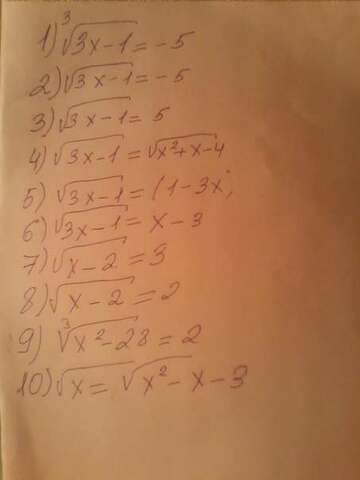 1) ∛(3x-1) = -5
2) √(3x-1) = -5
3) √(3x-1) = 5
4) √(3x-1) = √(x²+x-4)
5) √(3x-1) = (1-3x)
6) √(3x-1) = x-3
7) √(x-2) = 3
8) √(x-2) = 2
9) ∛(x²-28) = 2
10) √x = √(x²-x-3)